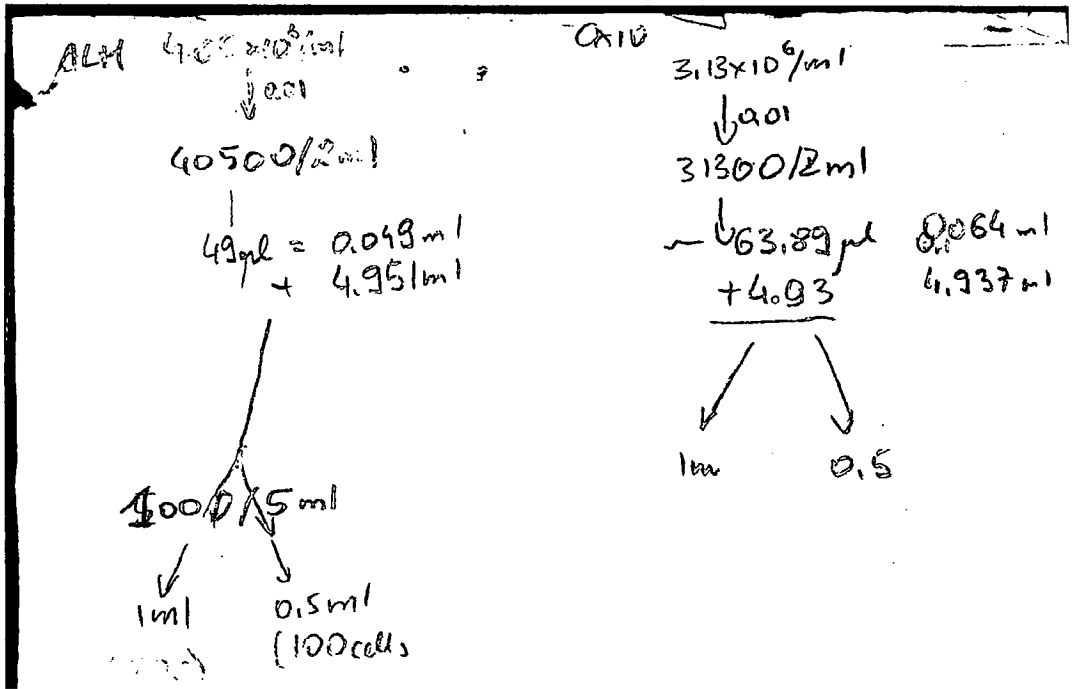 ALH 4.05x10⁶/ml
↓ 0.01
40500/2ml
49µl = 0.049ml
+ 4.951ml
1000/5ml
1ml 0.5ml
(100 cells
OX10
3.13x10⁶/ml
↓ 0.01
31300/2ml
~ 63.89µl 0.064ml
+4.93 4.937ml
1m 0.5